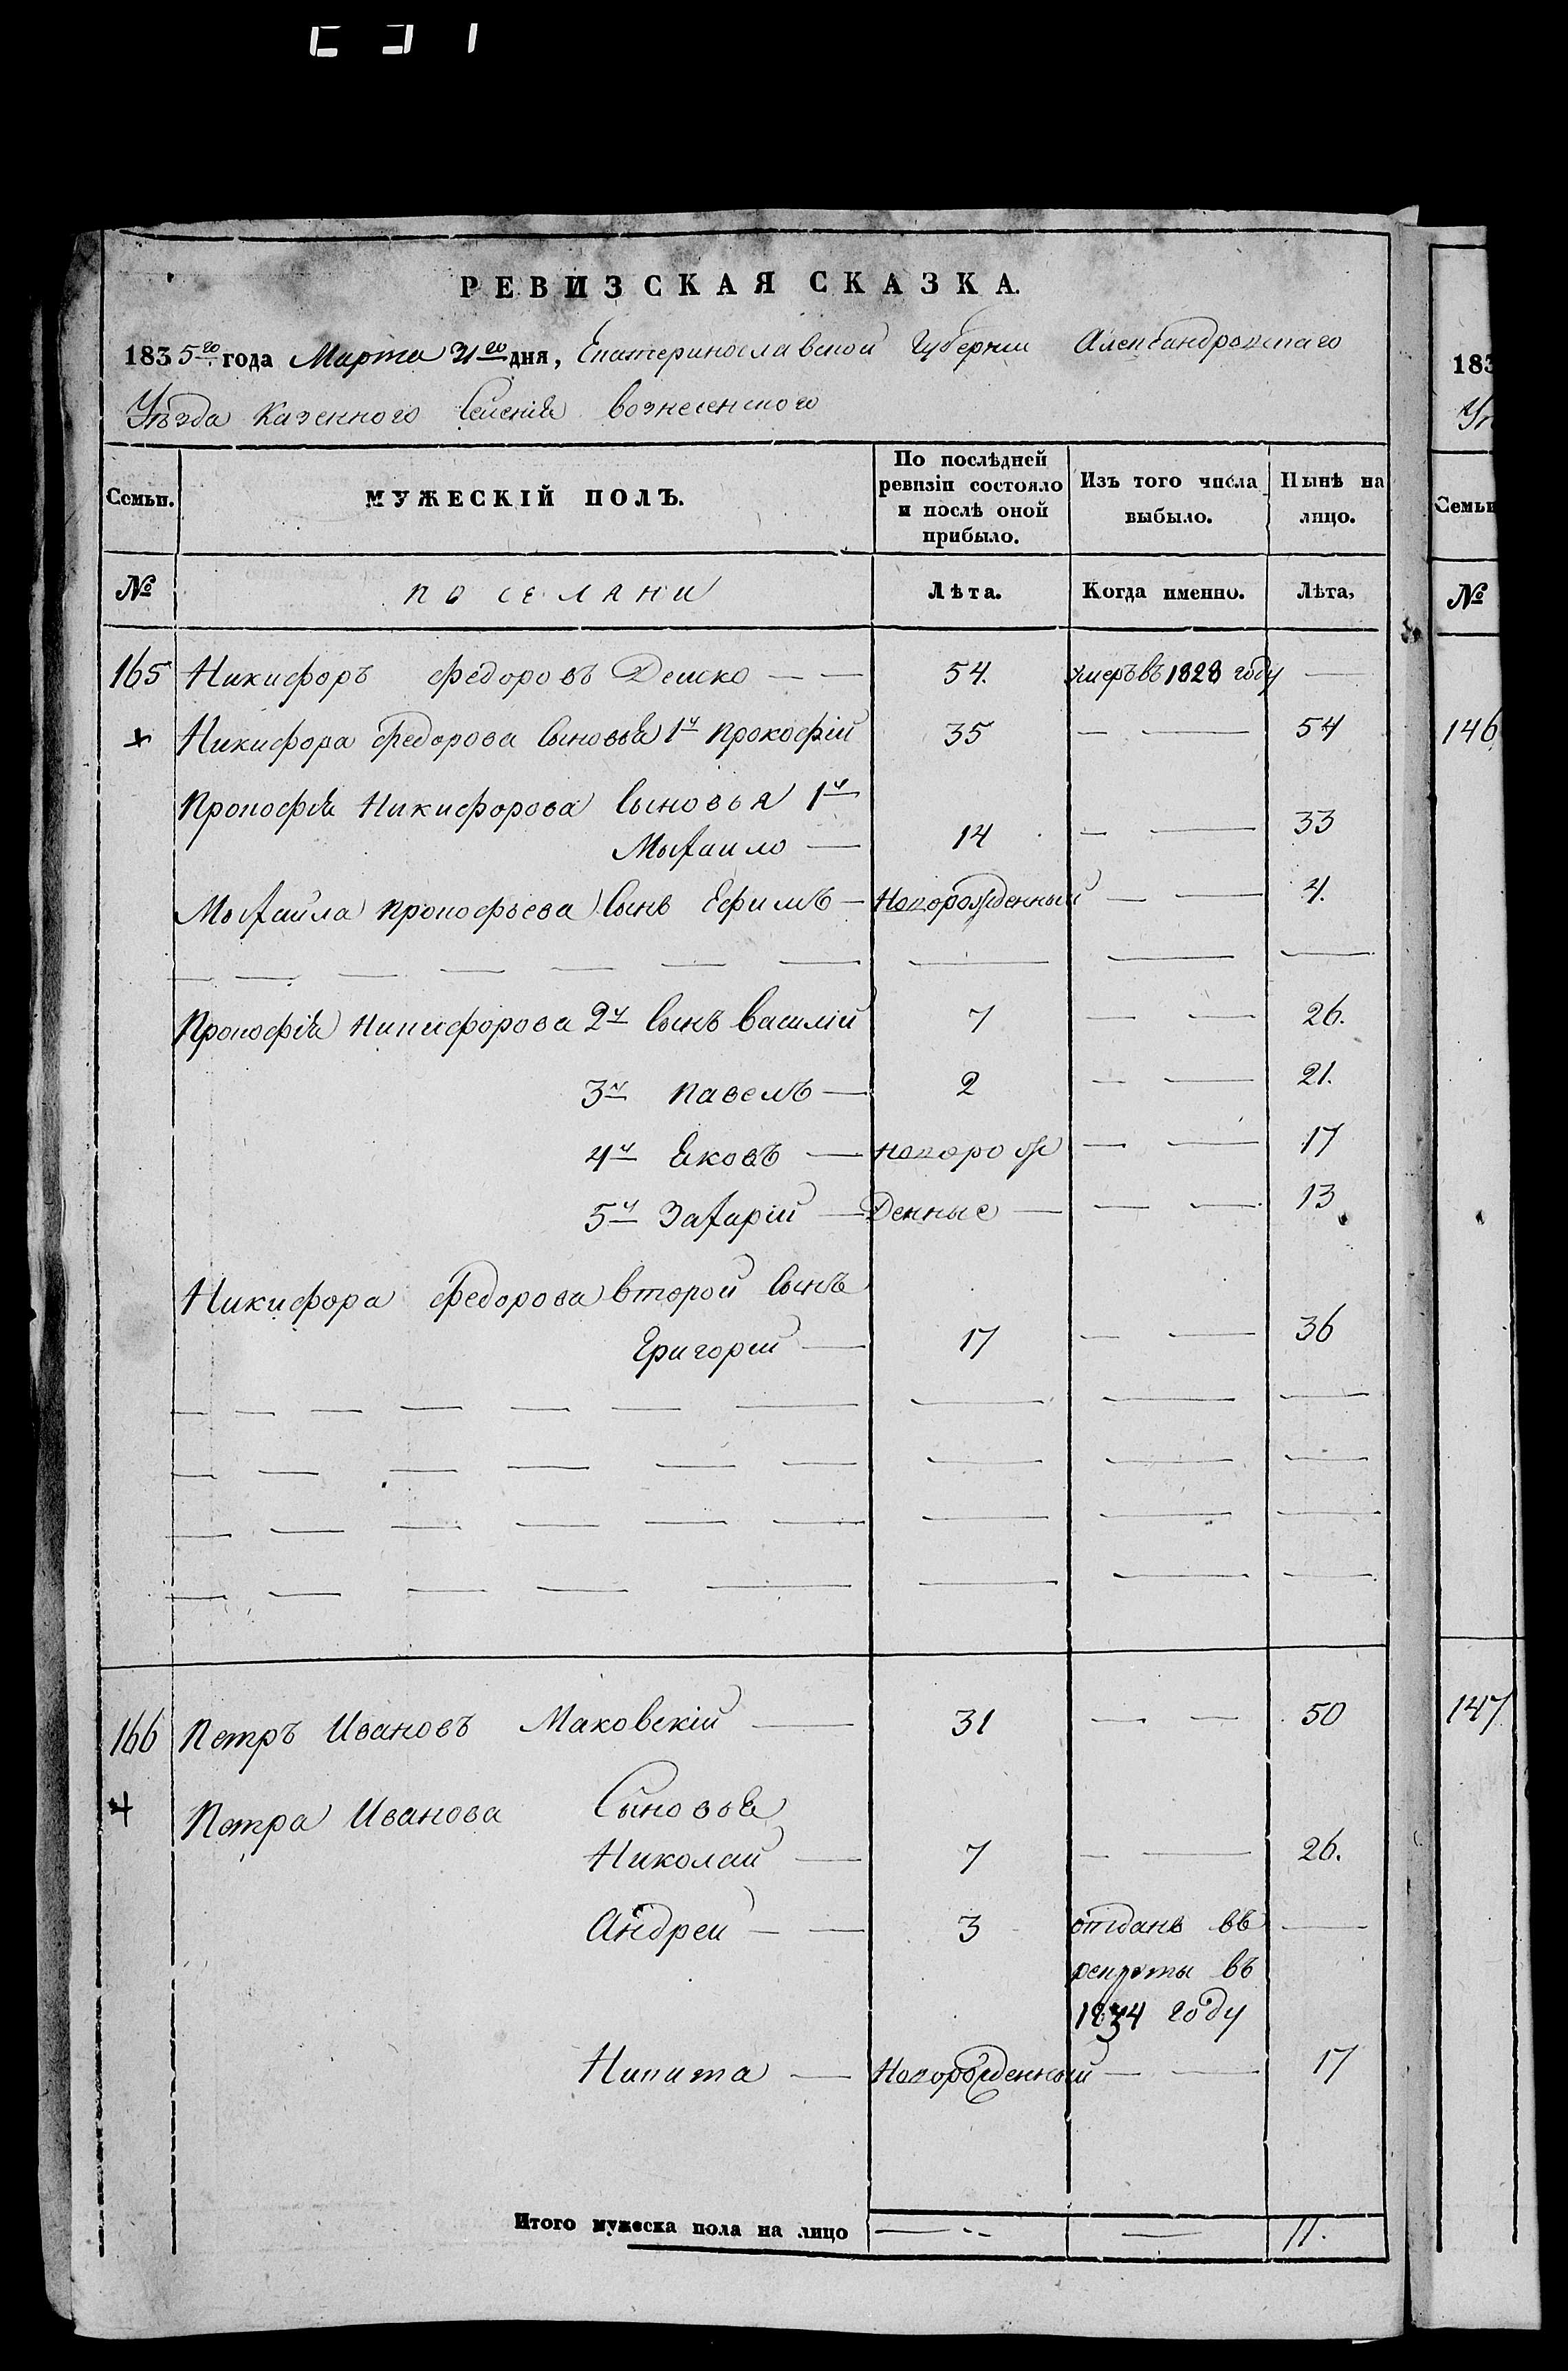 РЕВИЗСКАЯ СКАЗКА.
1835го года Марта 21го дня, Екатеринославской Губернии Александровскаго
Уѣзда Казенного Селения Вознесенского
Семьи.
МУЖЕСКІЙ ПОЛЪ.
По послѣдней ревизіи состояло и послѣ оной прибыло.
Изъ того числа выбыло.
Нынѣ на лицо.
№
поселяни
Лѣта.
Когда именно.
Лѣта,
165 Никифоръ Федоровъ Деиско — — 54. умеръ въ 1828 году —
Никифора Федорова Сыновья 1й Прокофій 35 — — 54
Прокофія Никифорова Сыновья 1й
Михайло — 14 — — 33
Михайла Прокофьева Сынъ Ефимъ — Новорожденный — — 4.
Прокофія Никифорова 2й Сынъ Василій 7 — — 26.
3й Павелъ — 2 — — 21.
4й Яковъ — новорож — — 17
5й Захарій — Денные — — — 13
Никифора Федорова второй Сынъ
Григорий — 17 — — 36
166 Петръ Ивановъ Маковскій — 31 — — 50
Петра Иванова Сыновья
Николай — 7 — — 26.
Андрей — — 3 отданъ въ —
рекруты въ
1834 году
Никита — Новорожденный — — 17
Итого мужеска пола на лицо — — 11.
183
Семьи
№
146
147